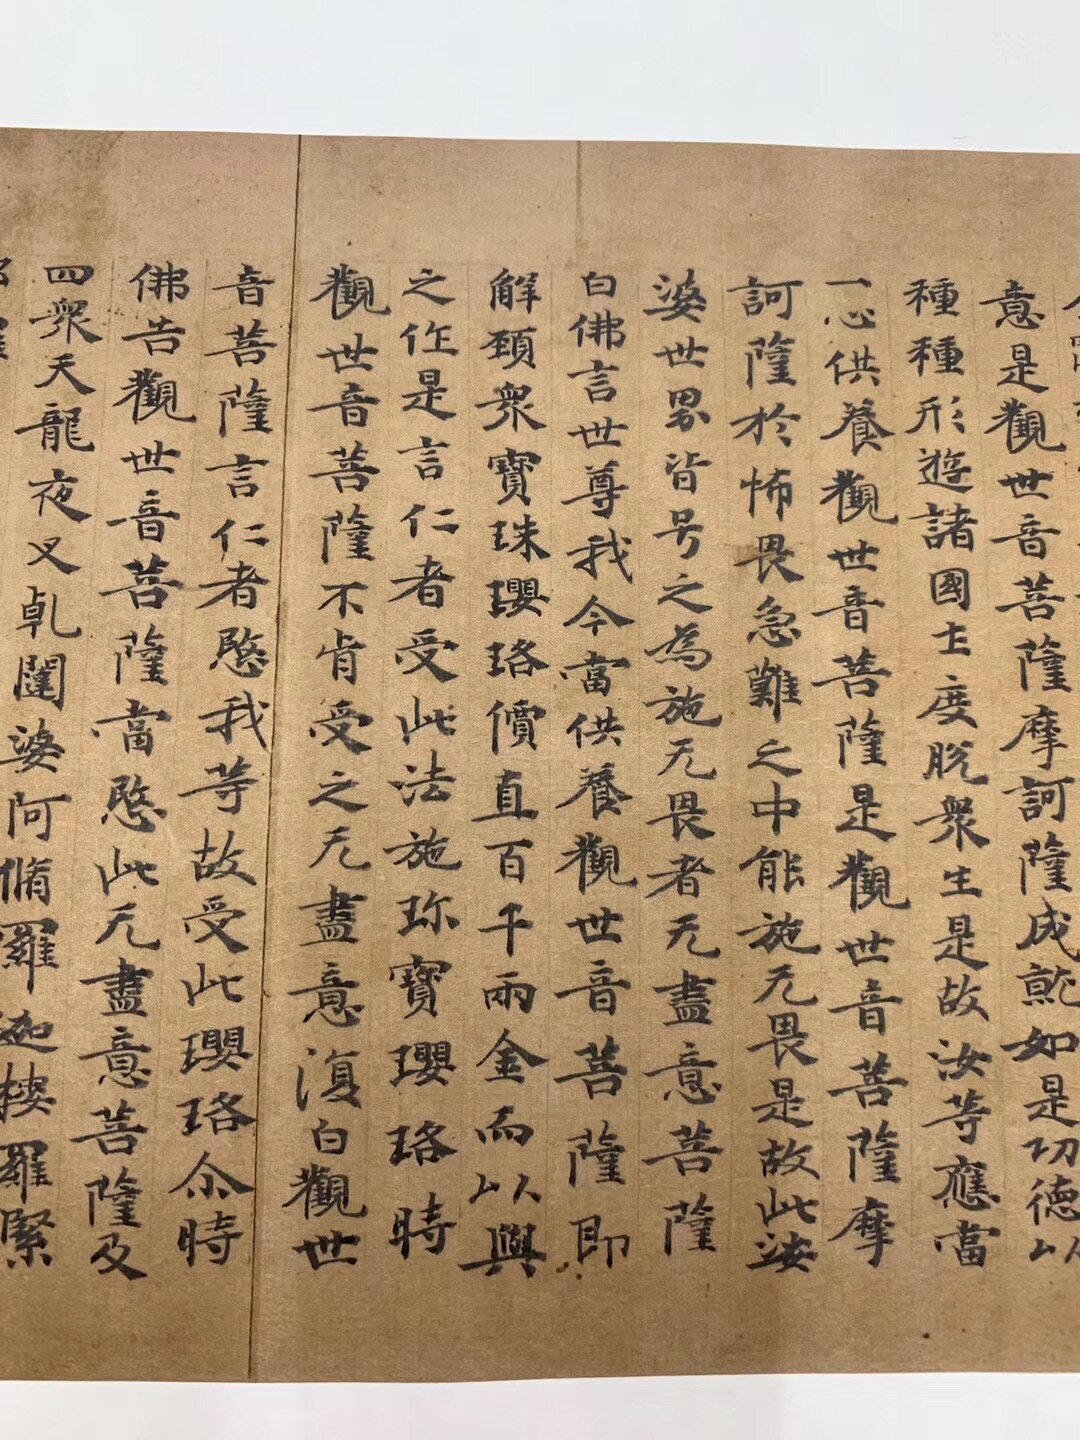 意是觀世音菩薩摩訶薩成就如是功德以
種種形遊諸國土度脫衆生是故汝等應當
一心供養觀世音菩薩是觀世音菩薩摩
訶薩於怖畏急難之中能施无畏是故此娑
婆世界皆号之為施无畏者无盡意菩薩
白佛言世尊我今當供養觀世音菩薩即
解頸衆寶珠瓔珞價直百千兩金而以與
之作是言仁者受此法施珎寶瓔珞時
觀世音菩薩不肯受之无盡意復白觀世
音菩薩言仁者愍我等故受此瓔珞尒時
佛告觀世音菩薩當愍此无盡意菩薩及
四衆天龍夜叉乹闥婆阿脩羅迦樓羅緊